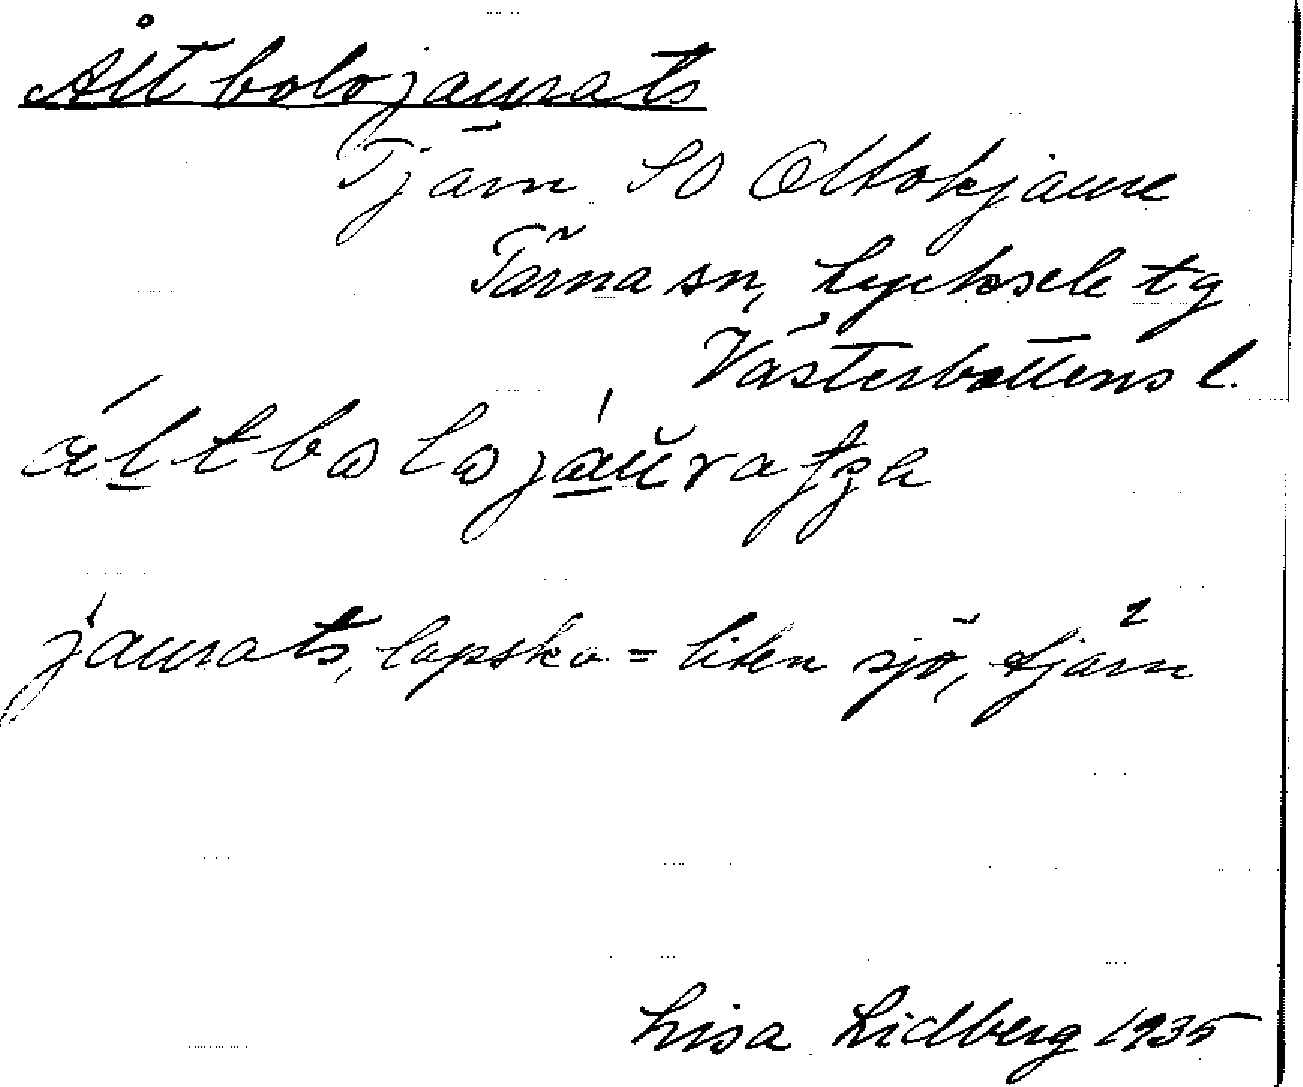 Ålt bolojaurats
Tjärn SO Oltokjaure
Tärna sn, Lycksele tg
Västerbottens l.
áltbolojáu̯ratza
jaurats, lapska = liten sjö, tjärn
Lisa Lidberg 1935